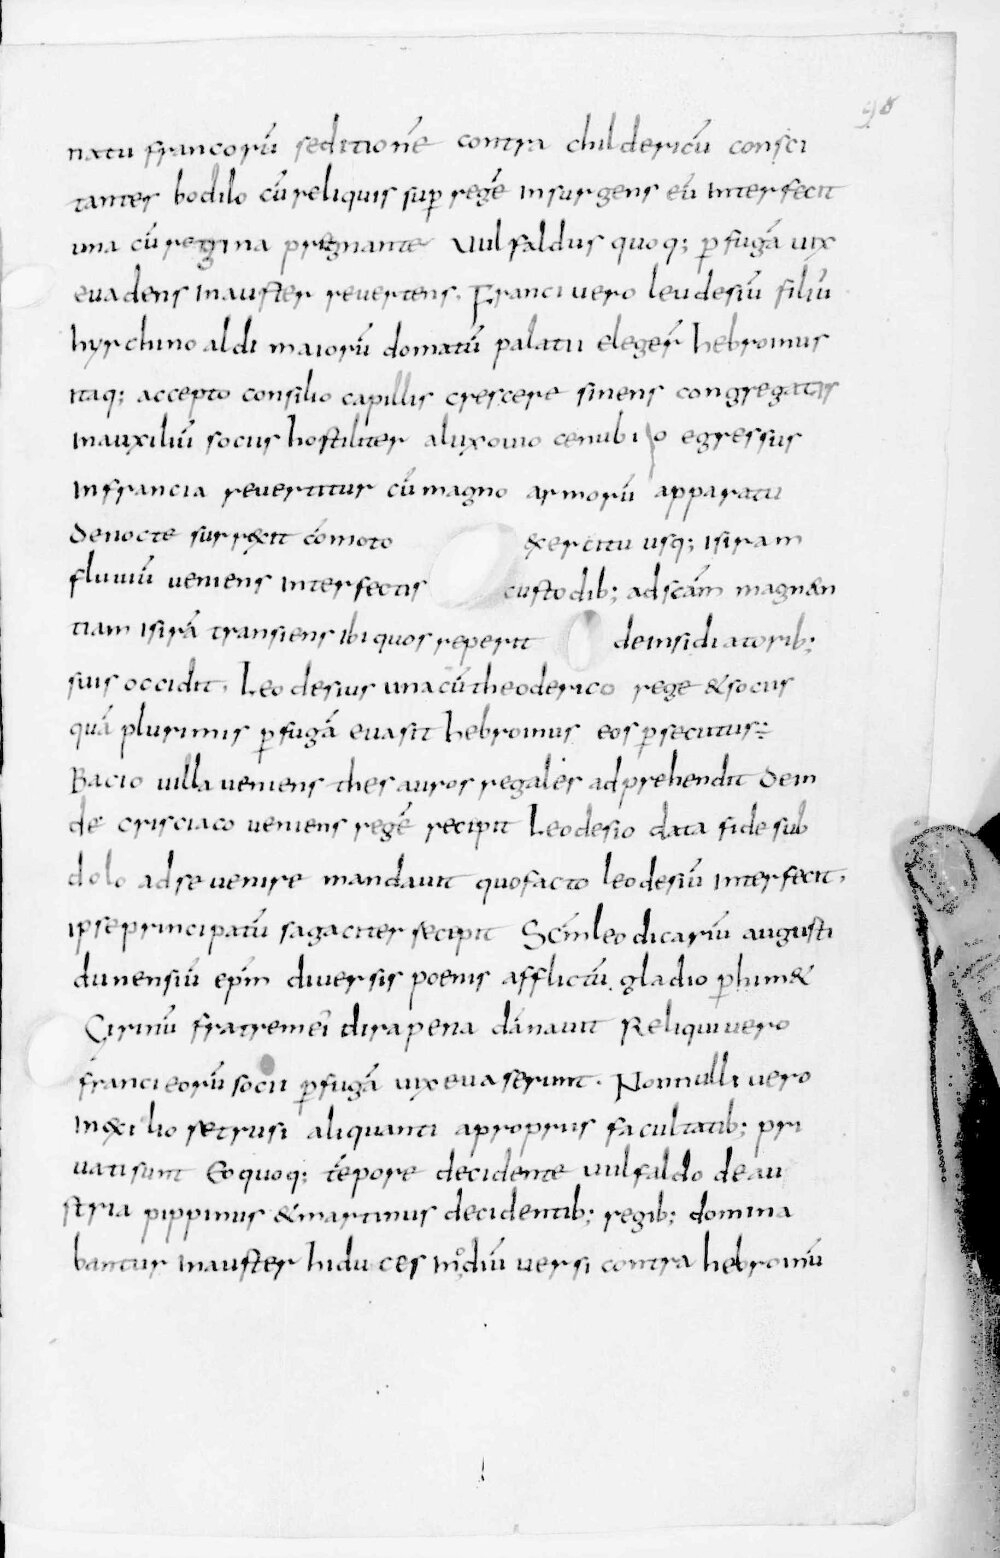 98
natu francorū seditionē contra childericū consci
tantes bodilo cū reliquis sup regē insurgens eū interfecit
una cū regina pregnante vulfaldus quoq; p fugā vix
evadens in auster revertens. Franci vero leudesiū filiū
hyrchinoaldi maiorū domatū palatii elegeř hebroinus
itaq; accepto consilio capillis crescere sinens congregatis
in auxiliū sociis hostiliter a luxovio cenubio egressus
in francia revertitur cū magno armorū apparatu
denocte surrexit cōmoto exercitu usq; isiram
fluviū veniens interfectis custodib; ad scām magnan
tiam isirā transiens ibi quos reperit de insidiatorib;
suis occidit. Leodesius una cū theoderico rege & sociis
quā plurimis p fugā evasit hebroinus eos psecutus;
Bacio villa veniens thesauros regales adprehendit dein
de crisciaco veniens regē recipit Leodesio data fide sub
dolo ad se venire mandavit quo facto leodesiū interfecit.
ipse principatū sagaciter recipit Scm̄ leodicariū augusti
dunensiū ep̄m diversis poenis afflictū gladio phim&
Girinū fratrem ei dira pena dānavit Reliqui vero
franci eorū socii p fugā vix evaserunt. Nonnulli vero
in exilio retrusi aliquanti a propriis facultatib; pri
vati sunt Eo quoq; tēpore decidente vulfaldo de au
stria pippinus & martinus decidentib; regib; domina
bantur in auster hi duces in odiū versi contra hebroinū